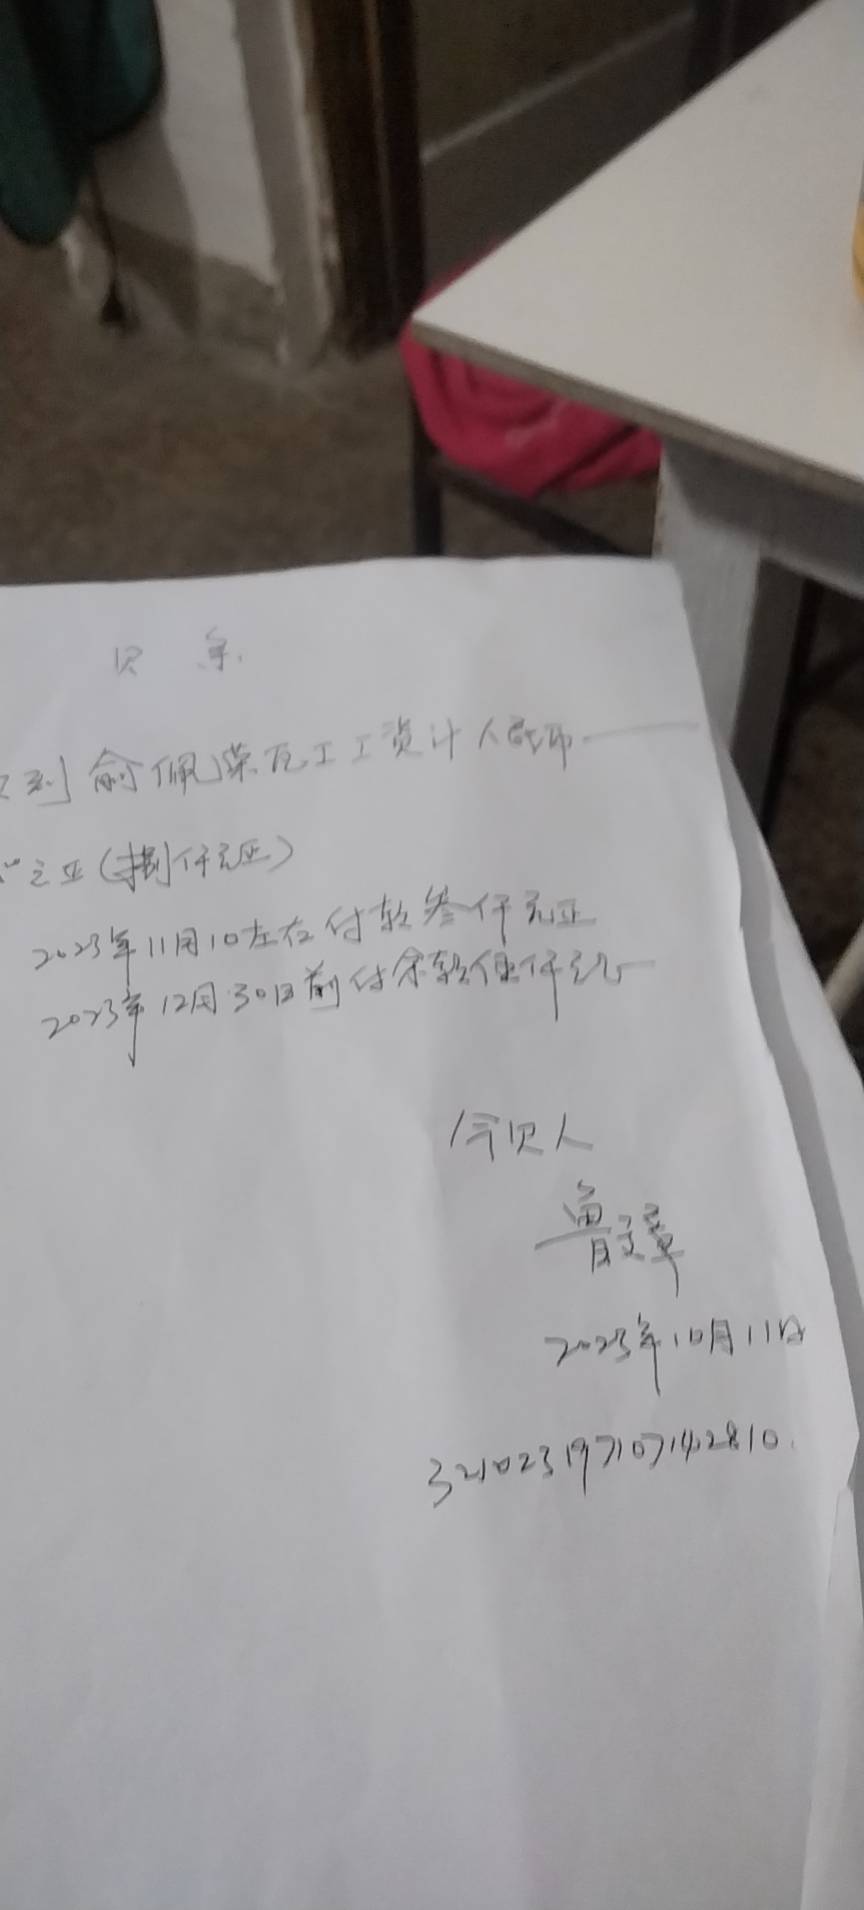 欠 条
欠到俞佩荣瓦工工资计人民币
元正(捌仟元正)
2023年11月10左右付款叁仟元正
2023年12月30日前付余款伍仟元正
今欠人
鲁文章
2023年10月11日
321023197107142810